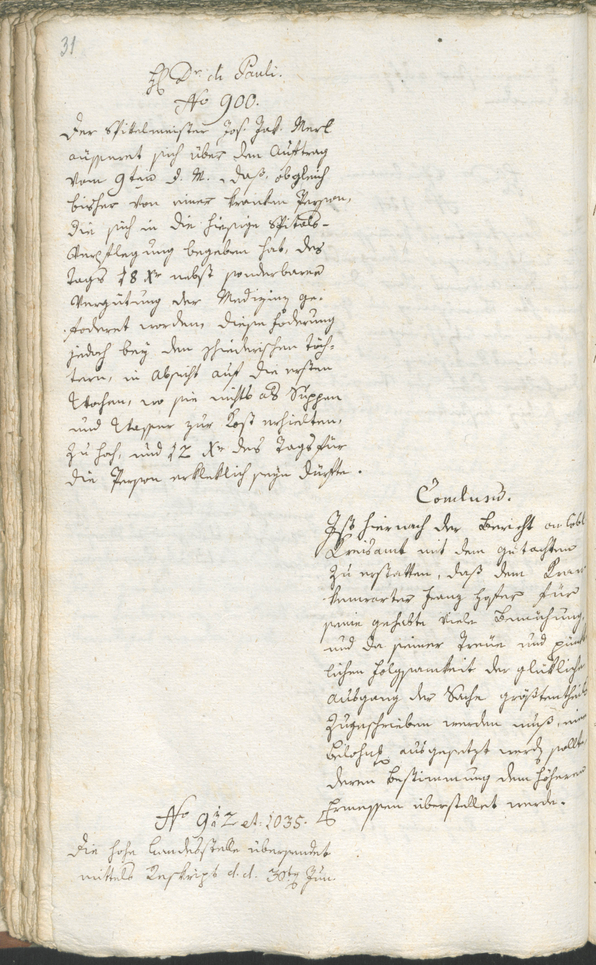 31
H Dr. di Pauli.
No 900.
Der Spitelmeister Jos. Jak. Merl
äusseret sich über den Auftrag
vom 9ten d. M., daß, obgleich
bisher von einer kranken Person,
die sich in die hiesige Spitals-
Verpflegung begeben hat, des
Tags 18 Xr nebst sonderbarer
Vergütung der Medizin ge-
foderet worden, diese Foderung
jedoch bey den schinderischen Töch-
tern, in Absicht auf die ersten
Wochen, wo sie nichts als Suppen
und Wasser zur Kost erhielten,
zu hoch, und 12 Xr des Tags für
die Person erkleklich seyn dürfte.
Conclusum.
Ist hiernach der Bericht an löbl.
Kreisamt mit dem Gutachten
zu erstatten, daß dem Kran-
kenwarter Franz Hofer für
seine gehabte viele Bemühung,
und da seiner Treue und pünkt
lichen Folgsamkeit der glükliche
Ausgang der Sache größtentheils
zugeschrieben werden muß, eine
Belohng ausgesetzt werden sollte,
deren Bestimmung dem höheren
Ermessen überstellet werde.
No 912 et 1035.
Die hohe Landesstelle übersendet
mittels Reskripts d. d. 30ten Jun.